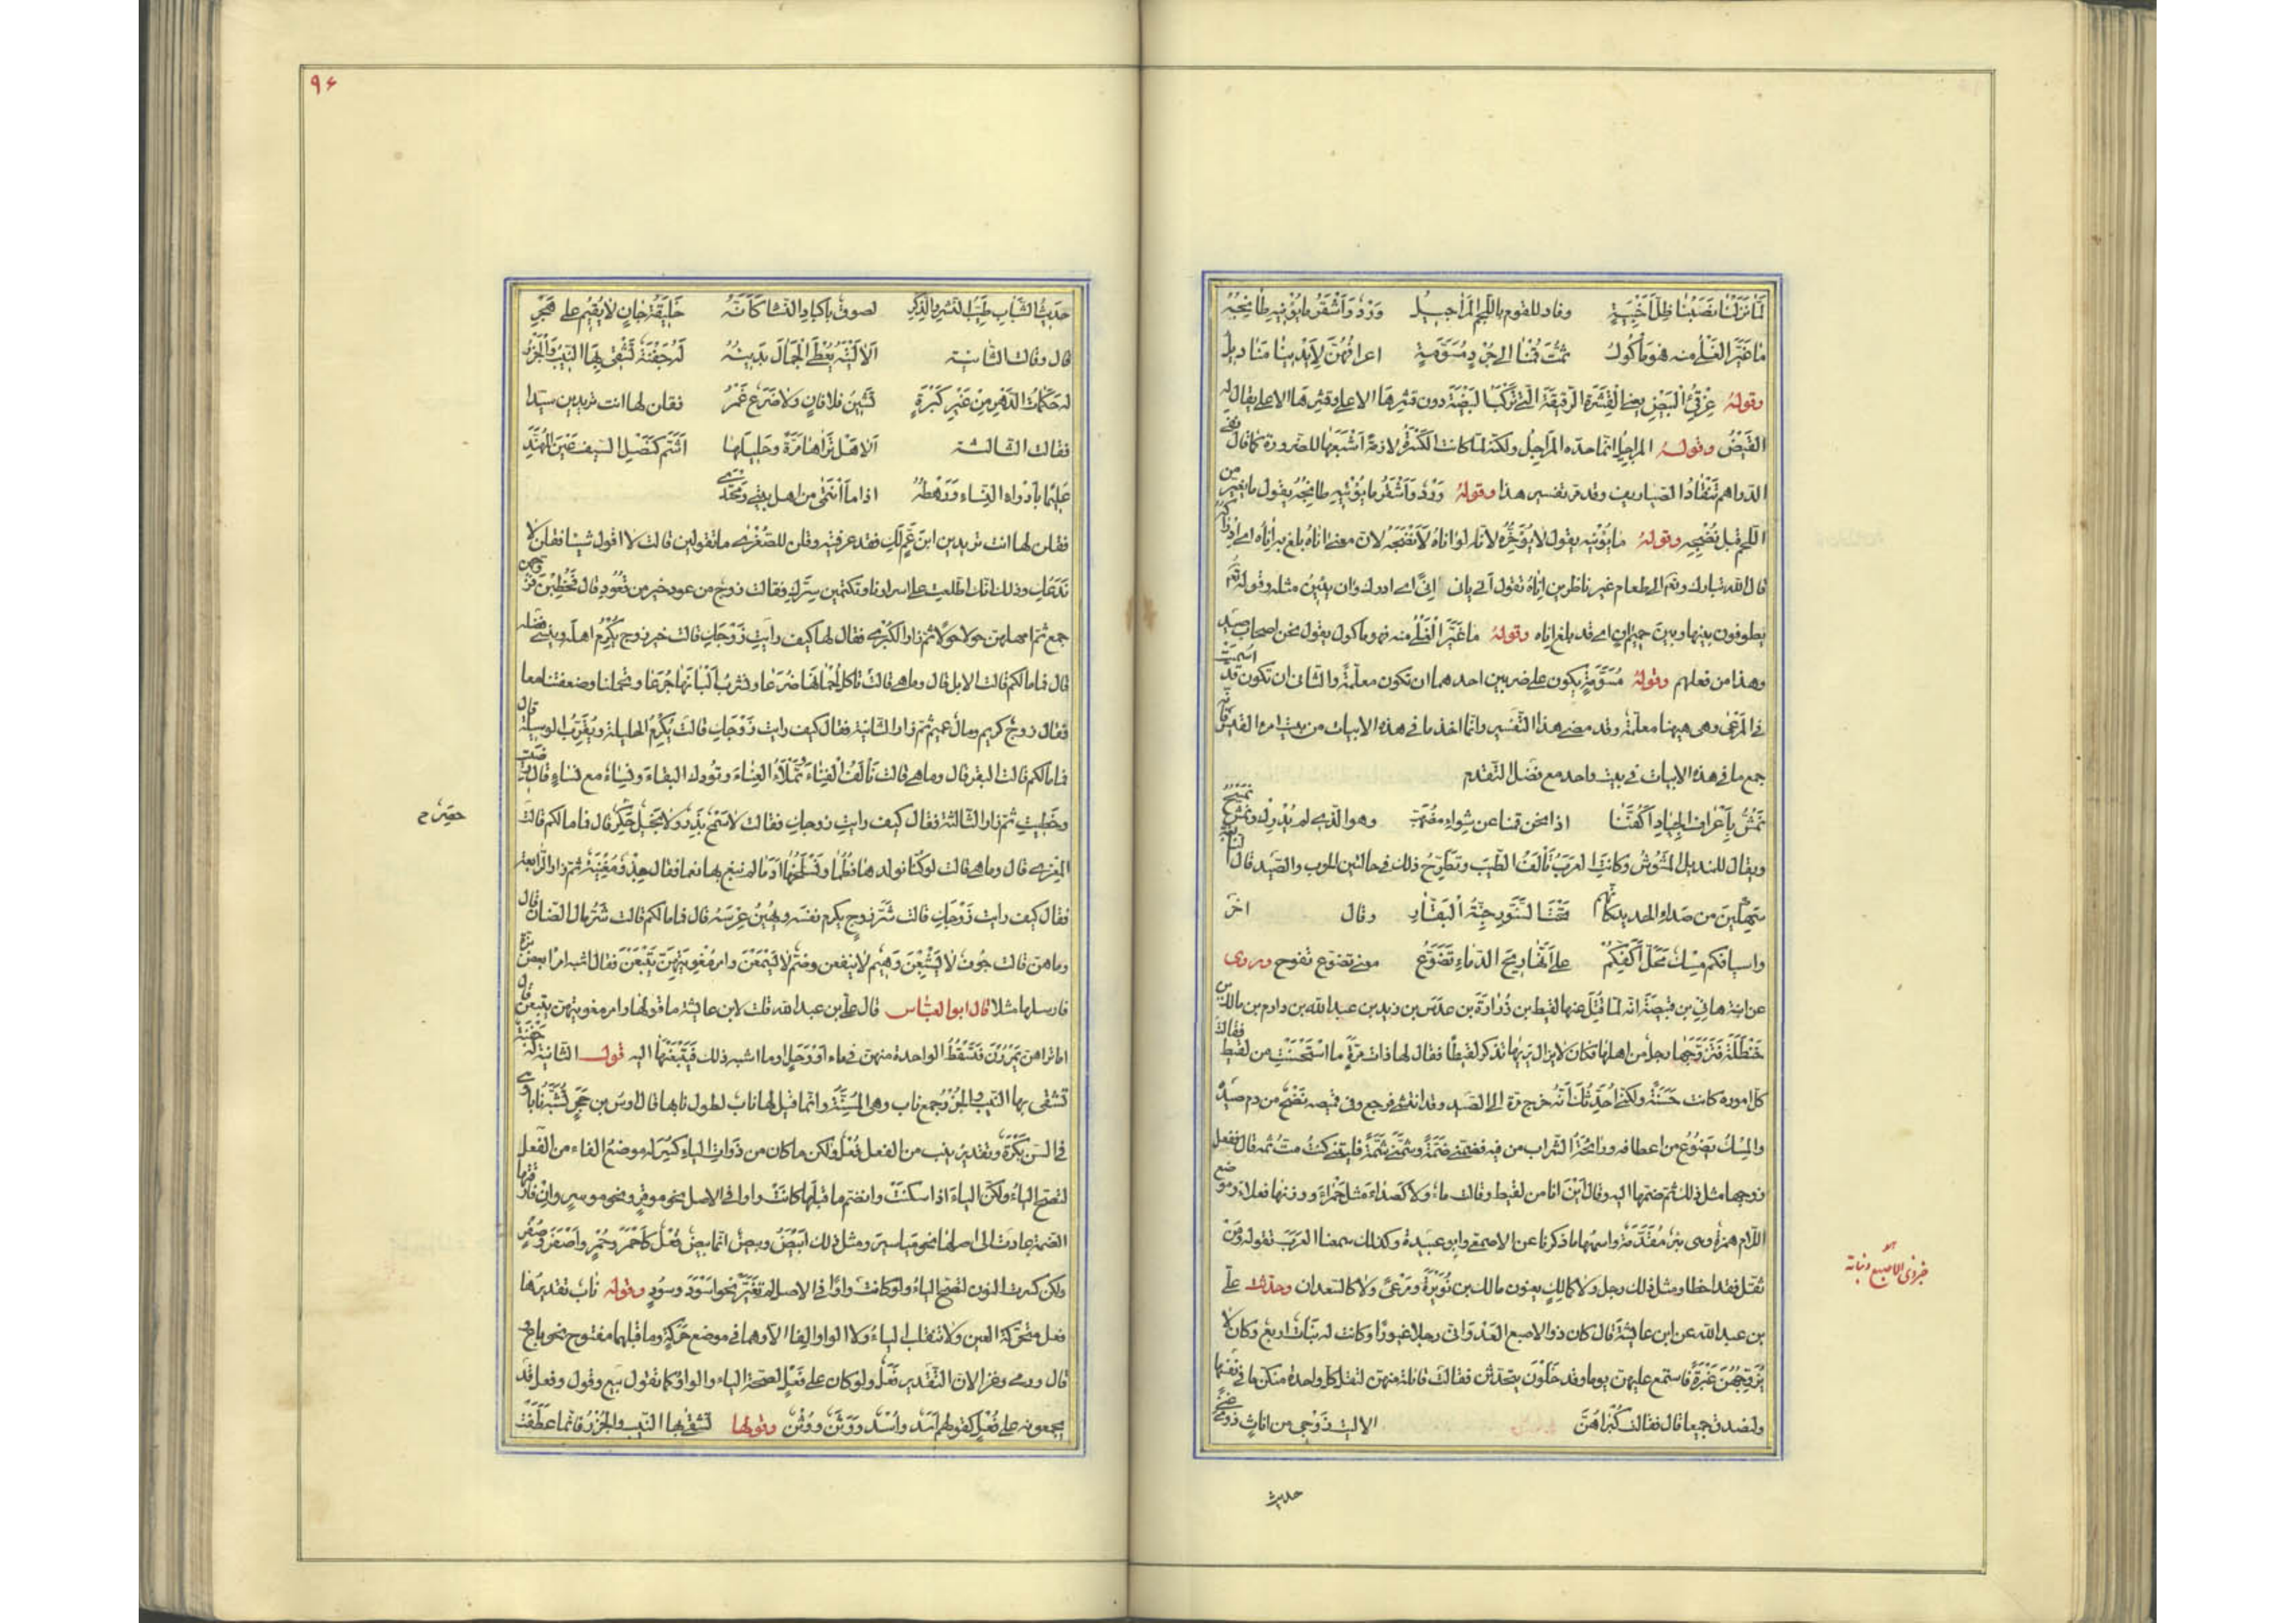 لمّا نزلنا نصبنا ظلّ أخبية وفار للقوم باللحم المراجيل ورد وأشقر ما يؤنيه طابخه
ما غيّر الغلي منه فهو مأكول ثمّت قمنا الى جرد مسوّمة اعرافهنّ لأيدينا مناديل
وقوله غرقئ البيض يعني القشرة الرقيقة التي تركب البيضة دون قشرها الاعلى وقشرها الاعلى يقال له
القيض وقوله المراجيل انما حده المراجل ولكنه لما كانت الكسرة لازمة أشبعها للضرورة كما قال نفي
الدراهم تنقاد الصياريف وقد مر تفسير هذا وقوله ورد وأشقر ما يؤنيه طابخه يقول ما تغير من
اللحم قبل نضجه وقوله ما يؤنيه يقول لا يؤخره لانه لو اناه لأنضجه لان معنى اناه بلغ به اناه اي ادراكه
قال الله تبارك وتعالى الى طعام غير ناظرين اناه تقول أنى يانى إنى اي ادرك وان يئين مثله وقوله تعالى
يطوفون بينها وبين حميم ان اي قد بلغ اناه وقوله ما غير الغلي منه فهو مأكول يقول نحن اصحاب صيد
وهذا من فعلهم وقوله مسومة يكون على ضربين احدهما ان تكون معلمة والثاني ان تكون قد اسيمت
في المرعى وهي ههنا معلمة وقد مضى هذا التفسير وانما اخذ ما في هذه الابيات من بيت امرء القيس فانه
جمع ما في هذه الابيات في بيت واحد مع فضل التقدم
نمشّ بأعراف الجياد أكفّنا اذا نحن قمنا عن شواء مضهّب وهو الذي لم يدرك ونمش نمسح
ويقال للمنديل المشوش وكانت العرب تألف الطيب وتطرح ذلك في حالتين الحرب والصيد قال النابغة
سهكين من صدا الحديد كأنهم تحت السنّور جنّة البقّار وقال اخر
واسيافكم مسك محلّ أكفّكم على أنّها ريح الدماء تضوّع معنى تضوع تفوح وروى
عن ابنة هاني بن قبيصة انه لما قتل عنها لقيط بن زرارة بن عدس بن زيد بن عبد الله بن دارم بن مالك بن
حنظلة فتزوجها رجل من اهلها فكان لا يزال يراها تذكر لقيطا فقال لها ذات مرة ما استحسنت من لقيط فقالت
كل اموره كانت حسنة ولكني أحدثك أنه خرج مرة الى الصيد وقد انتشى فرجع وفي قميصه نضح من دم صيد
والمسك يضوع من اعطافه ورائحة الشراب من فيه فضمني ضمة وشمني شمة فليتني كنت مت ثمه قال ففعل
زوجها مثل ذلك ثم ضمها اليه وقال أين انا من لقيط وقالت ماء ولا كصداء مثل حمراء ووزنها فعلاء وموضع
اللام همزة وهي بئر مقدمة واسمها ما ذكرنا عن الاصمعي وابو عبيدة وكذلك سمعنا العرب تقوله ومن
ثقل فقد اخطا ومثل ذلك رجل ولا كمالك يعنون مالك بن نويرة ومرعى ولا كالسعدان وحدثت على
بن عبد الله عن ابن عائشة قال كان ذو الاصبع العدواني رجلا غيورا وكانت له بنات اربع وكان لا
يزوجهن غيرة فاستمع عليهن يوما وقد خلون يتحدثن فقالت قائلة منهن لتقل كل واحدة منكن ما في نفسها
ولنصدق جميعا قال فقالت كبراهن الا ليت زوجي من اناس ذوي غنى
حديث
خبر ذي الاصبع وبناته
٩٤
حديث الشباب طيّب النشر والذكر لصوق بأكباد النساء كأنّه خليفة جان لا يقيم على هجر
قال وقالت الثانية ألا ليته يعطى الجمال بديئه له جفنة تشقى بها النيب والجزر
له حكمات الدهر من غير كبرة تشين فلا فان ولا ضرع غمر فقلن لها انت تريدين سيدا
فقالت الثالثة ألا هل تراها مرّة وحليلها أشمّ كنصل السيف عين المهنّد
عليما بأدواء النساء ورهطه اذا ما أنتمى من اهل بيتي ومحتدي
فقلن لها انت تريدين ابن عم لك فقد عرفته وقلن للصغرى ما تقولين قالت لا اقول شيئا فقلن لا
ندعك وذلك انك اطلعت على اسرارنا وتكتمين سرك فقالت زوج من عود خير من قعود قال فخطبن فزوجهن
جمع ثم امهلهن حولا ثم زار الكبرى فقال لها كيف رأيت زوجك قالت خير زوج يكرم اهله وينسى فضله
قال فما مالكم قالت الابل قال وما هي قالت نأكل لحمانها مزعا ونشرب ألبانها جرعا وتحملنا وضعفتنا معا
فقال زوج كريم ومال عميم ثم زار الثانية فقال كيف رايت زوجك قالت يكرم الحليلة ويقرب الوسيلة قال
فما مالكم قالت البقر قال وما هي قالت تألف الفناء وتملأ الاناء وتودك السقاء ونساء مع نساء قال رضيت
وحظيت ثم زار الثالثة فقال كيف رايت زوجك فقالت لا سمح بذر ولا بخيل حكر قال فما مالكم قالت
المعزى قال وما هي قالت لو كنا نولدها فطما ونسلخها أدما لم نبغ بها نعما فقال جذو مغنية ثم زار الرابعة
فقال كيف رايت زوجك قالت شر زوج يكرم نفسه ويهين عرسه قال فما مالكم قالت شر مال الضان قال
وما هن قالت جوف لا يشبعن وهيم لا ينقعن وصم لا يسمعن وامر مغويتهن يتبعن فقال اشبه امرا بعض بزه
فارسلها مثلا قال ابو العباس قال علي بن عبد الله قلت لابن عائشة ما قولها وامر مغويتهن يتبعن قال
اما تراهن يمررن فتسقط الواحدة منهن في ماء او وحل او ما اشبه ذلك فيتبعنها اليه قول الثانية له جفنة
تشقى بها النيب والجزر جمع ناب وهي المسنة وانما قيل لها ناب لطول نابها قال اوس بن حجر تشبه نابا وهي
في السن بكرة وتقدير نيب من الفعل فعل ولكن ما كان من ذوات الياء كسر له موضع الفاء من الفعل
لتصح الياء ولكن الياء اذا سكنت وانضم ما قبلها كانت واوا في الاصل نحو موقن ونحو موسر وان فارقها
الضمة عادت الى اصلها نحو مياسير ومثل ذلك ابيض وبيض انما بيض فعل كأحمر وحمر وأصفر وصفر
ولكن كسرت النون لتصح الياء ولو كانت واوا في الاصل لم تغير نحو أسود وسود وقوله ناب تقديرها
فعل متحركة العين ولا تنقلب الياء ولا الواو الفا الا وهما في موضع حركة وما قبلهما مفتوح نحو باع و
قال ورمى وغزا لان التقدير فعل ولو كان على فعل لصحت الياء والواو كما تقول بيع وقول وفعل قد
يجمعونه على فعل كقولهم أسد وأسد ووثن ووثن وقولها تشقى بها النيب والجزر فانما عطفت